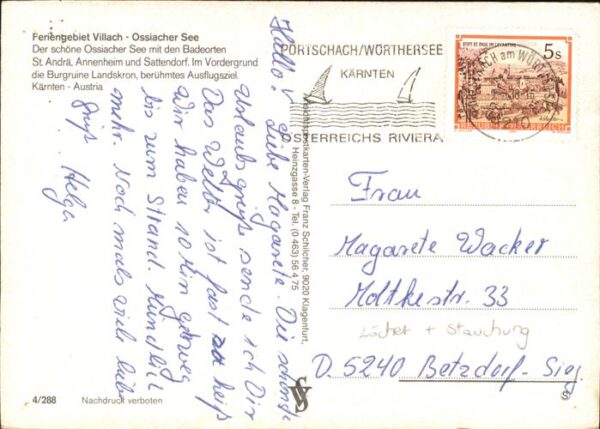 Feriengebiet Villach - Ossiacher See
Der schöne Ossiacher See mit den Badeorten
St. Andrä, Annenheim und Sattendorf. Im Vordergrund
die Burgruine Landskron, berühmtes Ausflugsziel.
Kärnten - Austria
Hallo! Liebe Magarete. Die schönste
Urlaubsgrüße sende ich Dir
Das Wetter ist fast zu heiß
Wir haben 10 Min gehweg
bis zum Strand. Mündlich
mehr. Noch mals viele liebe
Grüße. Helga
Ansichtspostkarten-Verlag Franz Schilcher, 9020 Klagenfurt,
Heinzgasse 8 - Tel. (0 463) 56 4 75
PÖRTSCHACH/WÖRTHERSEE
KÄRNTEN
ÖSTERREICHS RIVIERA
STIFT ST. PAUL IM LAVANTTAL
5s
REPUBLIK ÖSTERREICH
Frau
Magarete Wacker
Moltkestr. 33
Löcher + Stauchung
D. 5240 Betzdorf-Sieg.
4/288
Nachdruck verboten
S